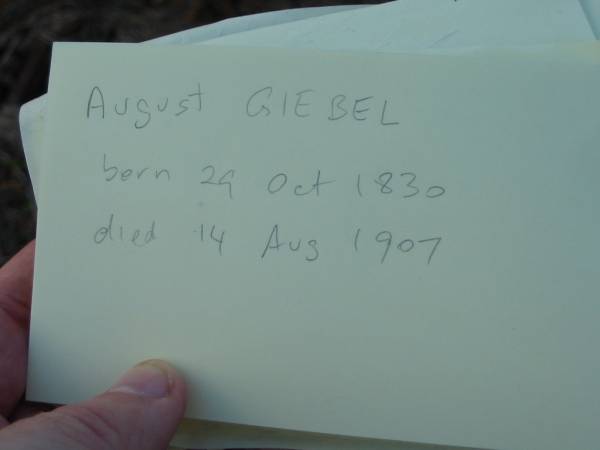 August GIEBEL
born 29 Oct 1830
died 14 Aug 1907